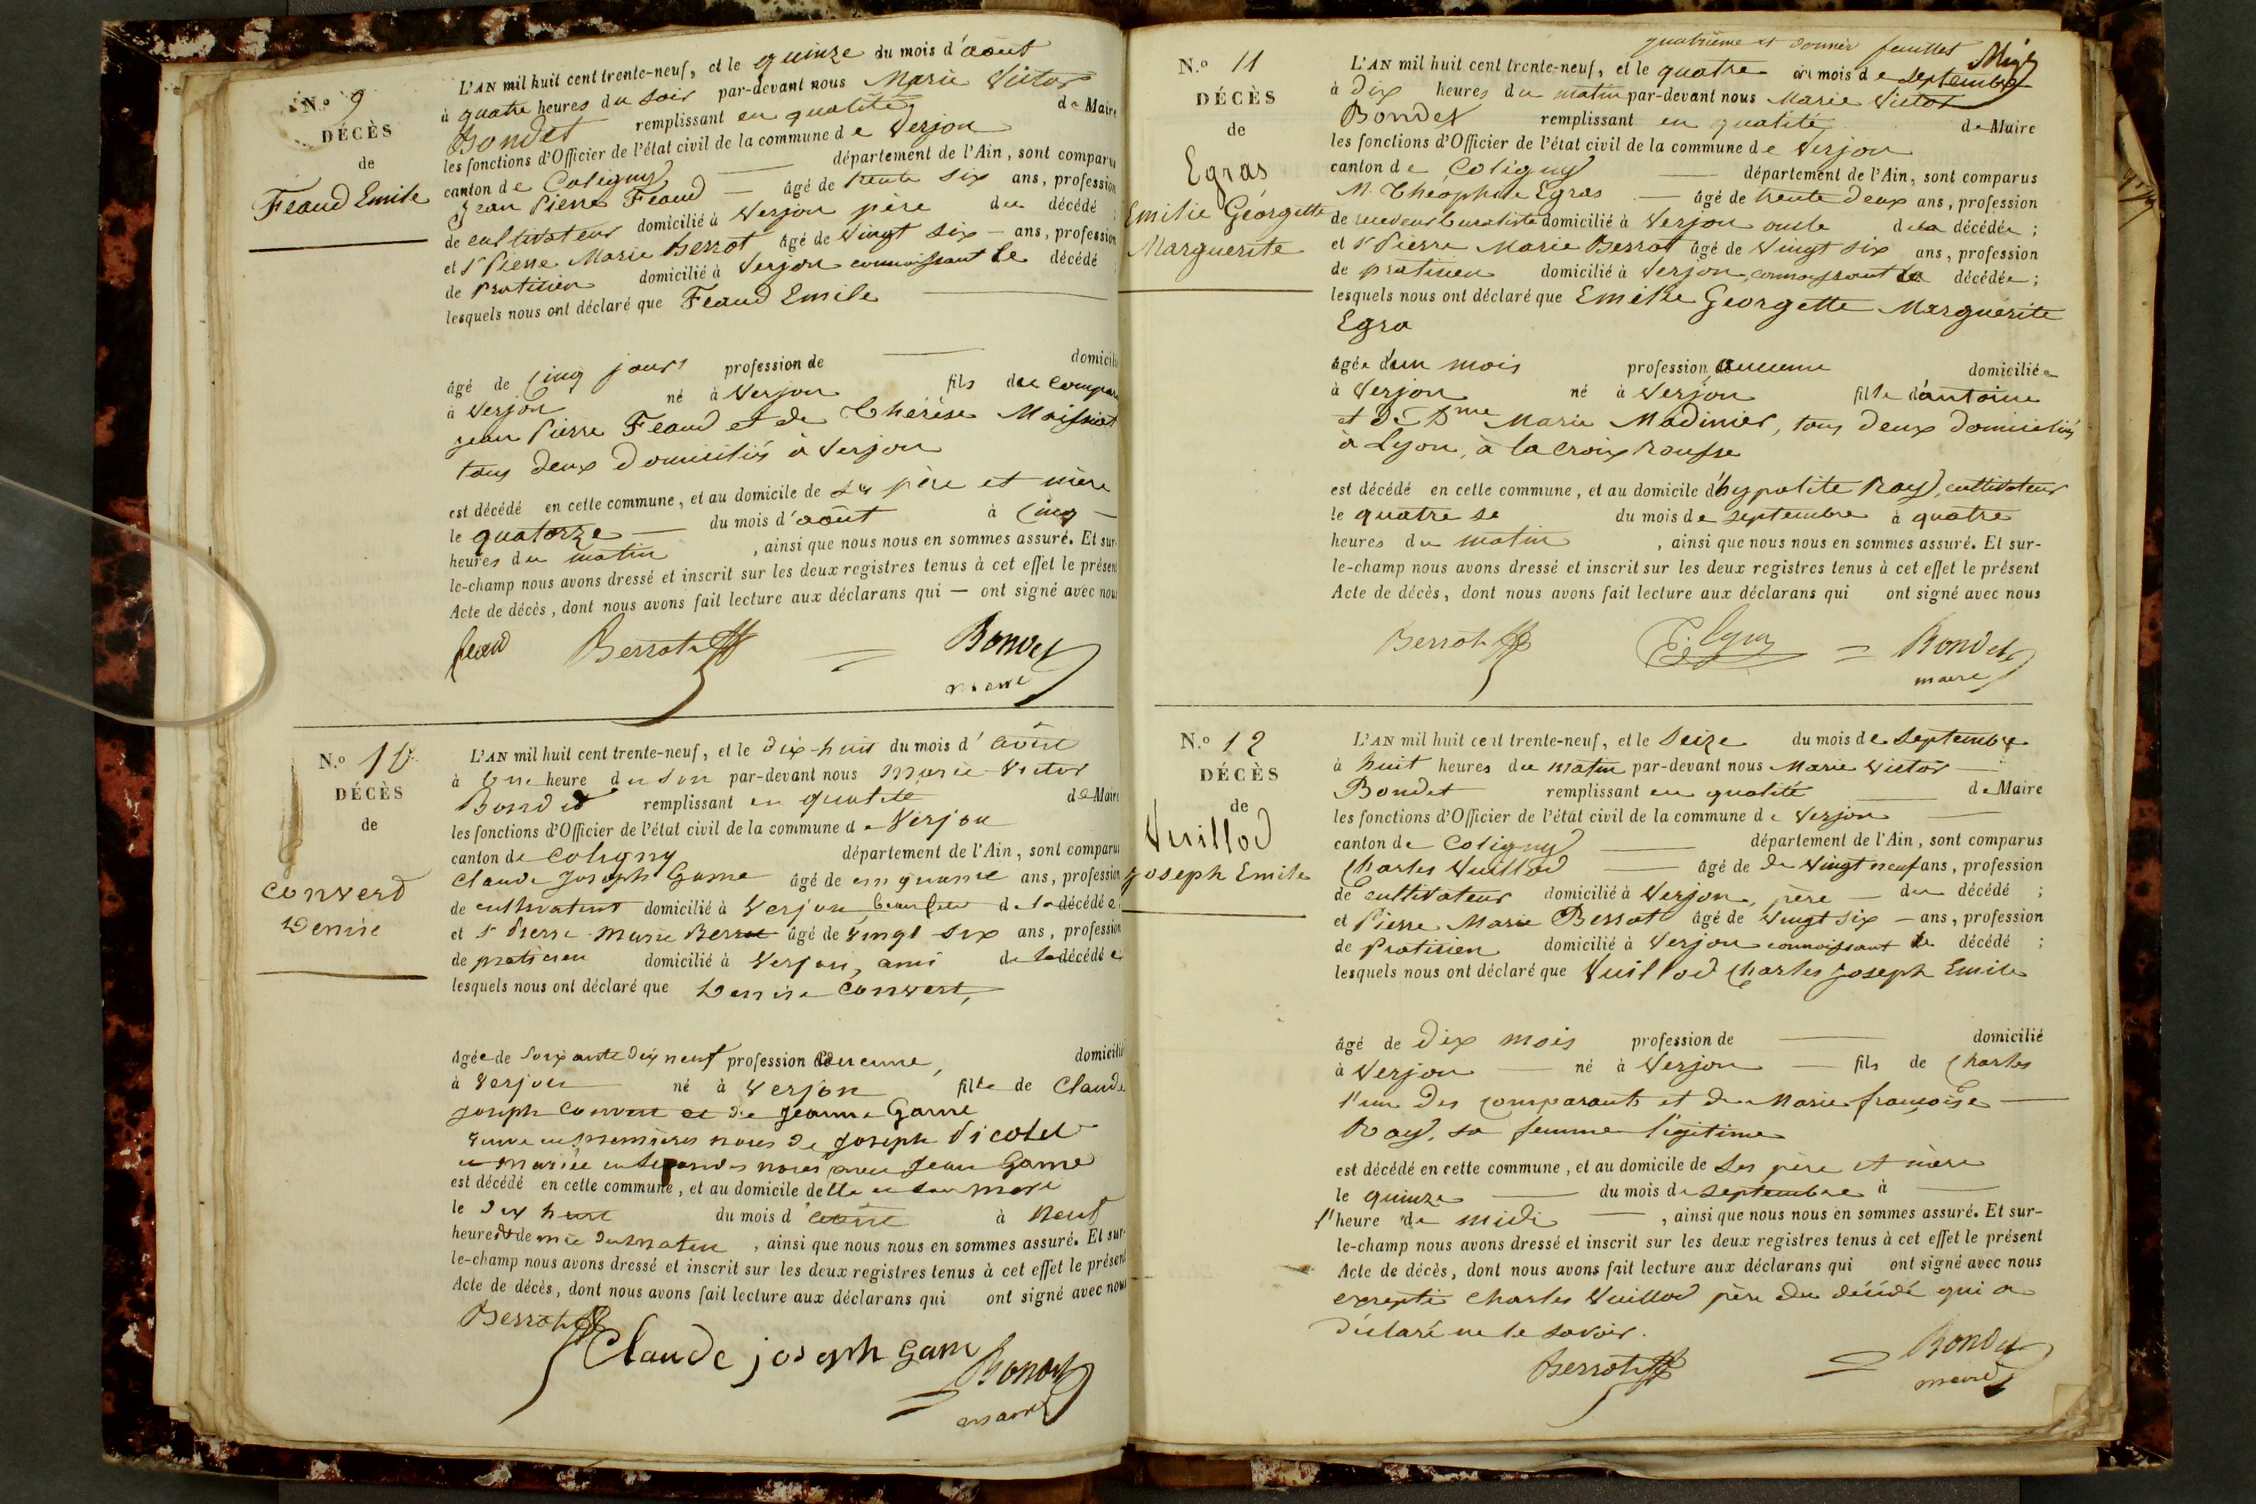 N.º 9
DÉCÈS
de
Feaud Emile
L'AN mil huit cent trente-neuf, et le quinze du mois d'août
à quatre heures du soir par-devant nous Marie Victor
Bondet remplissant en qualité de Maire
les fonctions d'Officier de l'état civil de la commune de Verjon
canton de Coligny département de l'Ain, sont comparus
Jean Pierre Feaud âgé de trente six ans, profession
de cultivateur domicilié à Verjon père du décédé ;
et Sr Pierre Marie Berrot âgé de vingt six ans, profession
de Praticien domicilié à Verjon connoissant le décédé ;
lesquels nous ont déclaré que Feaud Emile
âgé de cinq jours profession de domicilié
à Verjon né à Verjon fils du compar
jean Pierre Feaud et de Thérèse Moissiat
tous deux domiciliés à Verjon
est décédé en cette commune, et au domicile de ses père et mère
le quatorze du mois d'août à cinq
heures du matin , ainsi que nous nous en sommes assuré. Et sur-
le-champ nous avons dressé et inscrit sur les deux registres tenus à cet effet le présent
Acte de décès, dont nous avons fait lecture aux déclarans qui — ont signé avec nous
feaud Berrot Bondet
maire
N.º 10
DÉCÈS
de
Convert
Denise
L'AN mil huit cent trente-neuf, et le dix-huit du mois d' août
à une heure du soir par-devant nous Marie-Victor
Bondet remplissant en qualité de Maire
les fonctions d'Officier de l'état civil de la commune de Verjon
canton de Coligny département de l'Ain, sont comparus
Claude Joseph Game âgé de cinquante ans, profession
de cultivateur domicilié à Verjon, beau fils de la décédée
et Sr Pierre Marie Berrot âgé de vingt six ans, profession
de praticien domicilié à Verjon, ami de la décédée
lesquels nous ont déclaré que Denise Convert,
âgée de soixante dix neuf profession aucune, domicilié
à Verjon né à Verjon fille de Claude
joseph Convert et de Jeanne Game
veuve en premières noces de Joseph Nicolet
et mariée en secondes noces avec Jean Game
est décédé en cette commune, et au domicile d'elle et son mari
le dix huit du mois d' août à neuf
heures et demie du matin , ainsi que nous nous en sommes assuré. Et sur-
le-champ nous avons dressé et inscrit sur les deux registres tenus à cet effet le présent
Acte de décès, dont nous avons fait lecture aux déclarans qui ont signé avec nous
Berrot
Claude joseph Game Bondet
maire
quatrième et dernier feuillet
N.º 11
DÉCÈS
de
Egras
Emilie Géorgette
Marguerite
L'AN mil huit cent trente-neuf, et le quatre du mois de septembre
à dix heures du matin par-devant nous Marie Victor
Bondet remplissant en qualité de Maire
les fonctions d'Officier de l'état civil de la commune de Verjon
canton de Coligny département de l'Ain, sont comparus
M. Théophile Egras âgé de trente deux ans, profession
de receveur buraliste domicilié à Verjon oncle de la décédée ;
et Sr Pierre Marie Berrot âgé de vingt six ans, profession
de praticien domicilié à Verjon, connoissant la décédée ;
lesquels nous ont déclaré que Emilie Georgette Marguerite
Egra
âgée d'un mois profession aucune domiciliée
à Verjon né à Verjon fille d'antoine
et De Dme Marie Madinier, tous deux domiciliés
à Lyon, à la croix Rousse
est décédé en cette commune, et au domicile d'hypolite Roy, cultivateur
le quatre se du mois de septembre à quatre
heures du matin , ainsi que nous nous en sommes assuré. Et sur-
le-champ nous avons dressé et inscrit sur les deux registres tenus à cet effet le présent
Acte de décès, dont nous avons fait lecture aux déclarans qui ont signé avec nous
Berrot Egras Bondet
maire
N.º 12
DÉCÈS
de
Vuillod
Joseph Emile
L'AN mil huit cent trente-neuf, et le seize du mois de septembre
à huit heures du matin par-devant nous Marie Victor
Bondet remplissant en qualité de Maire
les fonctions d'Officier de l'état civil de la commune de Verjon
canton de Coligny département de l'Ain, sont comparus
Charles Vuillod âgé de de vingt neuf ans, profession
de cultivateur domicilié à Verjon, père du décédé ;
et Pierre Marie Berrot âgé de vingt six ans, profession
de Praticien domicilié à Verjon connoissant le décédé ;
lesquels nous ont déclaré que Vuillod Charles Joseph Emile
âgé de dix mois profession de domicilié
à Verjon né à Verjon fils de Charles
l'un des comparants et de Marie françoise
Roy, sa femme légitime
est décédé en cette commune, et au domicile de ses père et mère
le quinze du mois de septembre à
l'heure de midi , ainsi que nous nous en sommes assuré. Et sur-
le-champ nous avons dressé et inscrit sur les deux registres tenus à cet effet le présent
Acte de décès, dont nous avons fait lecture aux déclarans qui ont signé avec nous
excepté Charles Vuillod père du décédé qui a
déclaré ne le savoir.
Berrot Bondet
maire